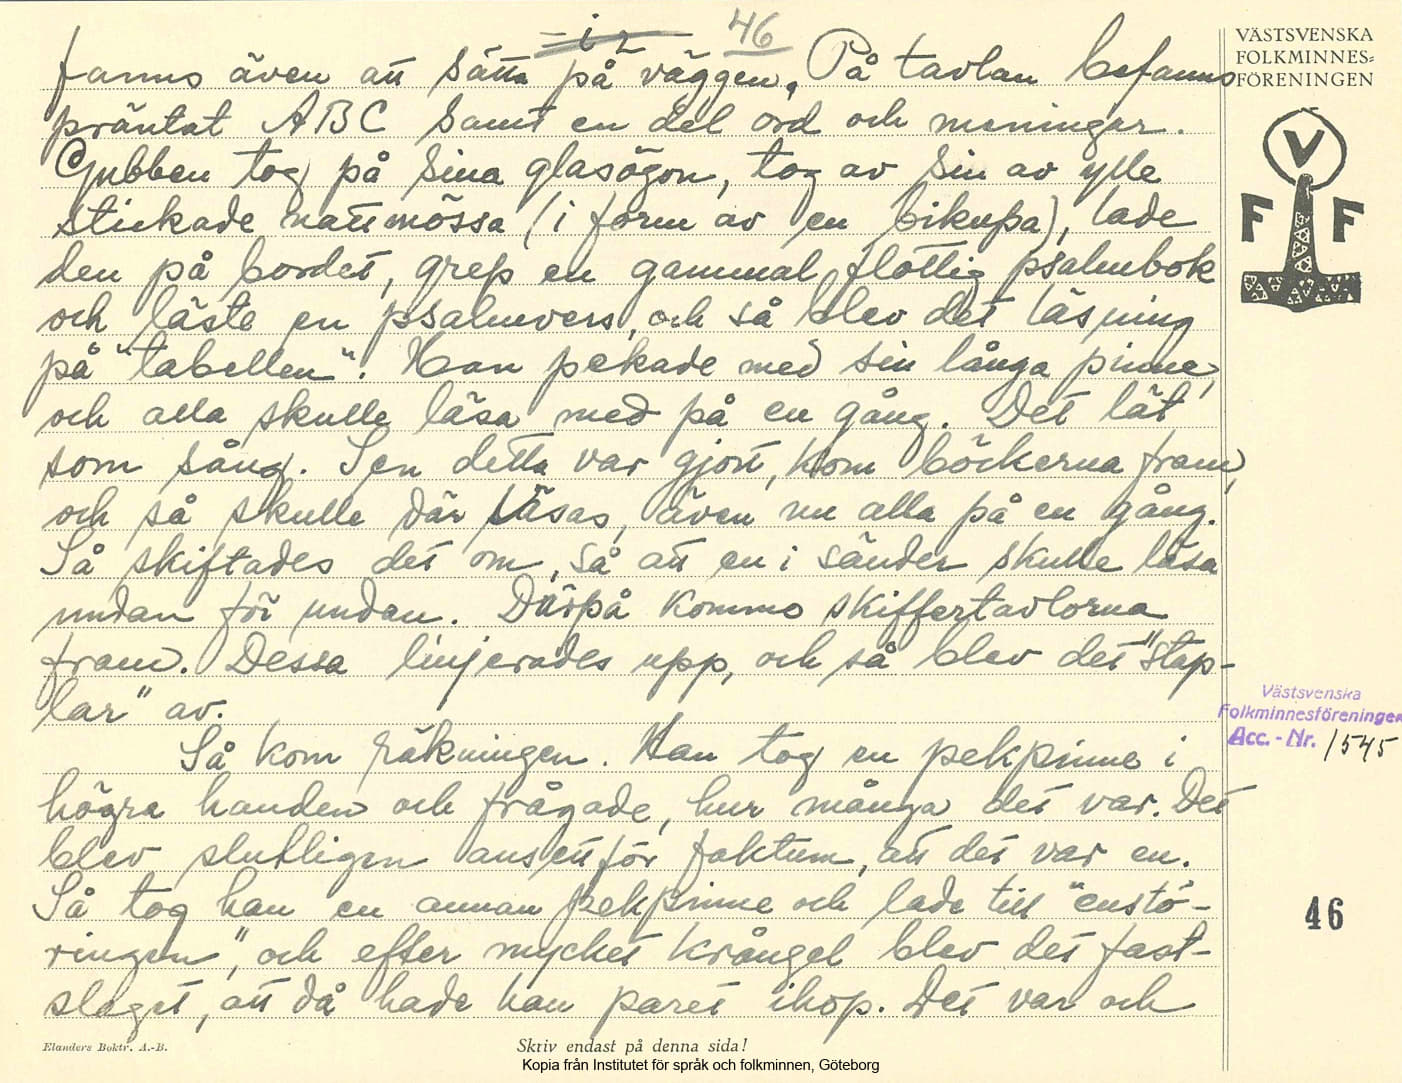 46
fanns även att sätta på väggen. På tavlan befanns
präntat ABC samt en del ord och meningar.
Gubben tog på sina glasögon, tog av sin av ylle
stickade nattmössa (i form av en bikupa), lade
den på bordet, grep en gammal flottig psalmbok
och läste en psalmvers, och så blev det läsning
på "tabellen". Han pekade med sin långa pinne,
och alla skulle läsa med på en gång. Det lät
som sång. Sen detta var gjort, kom böckerna fram,
och så skulle där läsas, även nu alla på en gång.
Så skiftades det om, så att en i sänder skulle läsa
undan för undan. Därpå kommo skiffertavlorna
fram. Dessa linjerades upp, och så blev det "stap-
lar" av.
Så kom räkningen. Han tog en pekpinne i
högra handen och frågade, hur många det var. Det
blev slutligen ansett för faktum, att det var en.
Så tog han en annan pekpinne och lade till "enstö-
ringen", och efter mycket krångel blev det fast-
slaget, att då hade han paret ihop. Det var och
VÄSTSVENSKA
FOLKMINNES=
FÖRENINGEN
V
F F
Västsvenska
Folkminnesföreningen
Acc.-Nr. 1545
46
Elanders Boktr. A.-B.
Skriv endast på denna sida!
Kopia från Institutet för språk och folkminnen, Göteborg